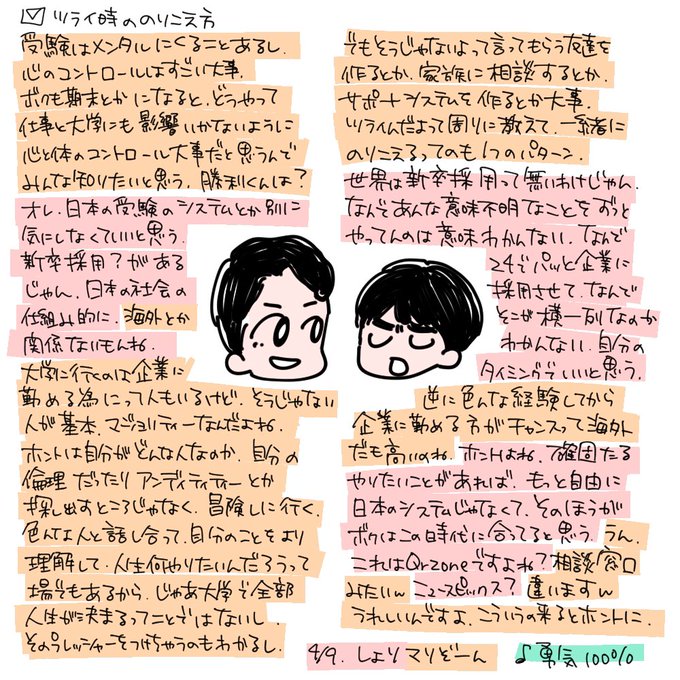 ☑ ツライ時ののりこえ方
受験はメンタルにくることあるし.
心のコントロールはすごい大事.
ボクも期末とかになると、どうやって
仕事と大学にも影響いかないように
心と体のコントロール大事だと思うんで
みんな知りたいと思う. 勝利くんは?
オレ、日本の受験のシステムとか別に
気にしなくていいと思う.
新卒採用?がある
じゃん. 日本の社会の
仕組み的に. 海外とか
関係ないもんね.
大学に行くのは企業に
勤める為にって人もいるけど、そうじゃない
人が基本、マジョリティーなんだよね.
ホントは自分がどんな人なのか、自分の
倫理だったりアンディティティーとか
探し出すところじゃなく、冒険しに行く.
色んな人と話し合って、自分のことをより
理解して、人生何やりたいんだろうって
場でもあるから. じゃあ大学で全部
人生が決まるってことではないし.
そのプレッシャーをつけちゃうのもわかるし.
でもそうじゃないよって言ってもらう友達を
作るとか、家族に相談するとか.
サポートシステムを作るとか大事.
ツライんだよって周りに教えて、一緒に
のりこえるってのも1つのパターン.
世界は新卒採用って無いわけじゃん.
なんであんな意味不明なことをずっと
やってんのは意味わかんない. なんで
24でパッと企業に
採用させて、なんで
そこが横一列なのか
わかんない. 自分の
タイミングでいいと思う.
逆に色んな経験してから
企業に勤める方がチャンスって海外
だも高いのね. ホントよね. 確固たる
やりたいことがあれば、もっと自由に
日本のシステムじゃなくて、そのほうが
ボクはこの時代に合ってると思う. うん.
これはQrzoneですよね?相談窓口
みたいw ニュースピックス? 違いますw
うれしいんですよ、こういうの来るとホントに.
4/9. しょり マリぞーん ♪勇気100%